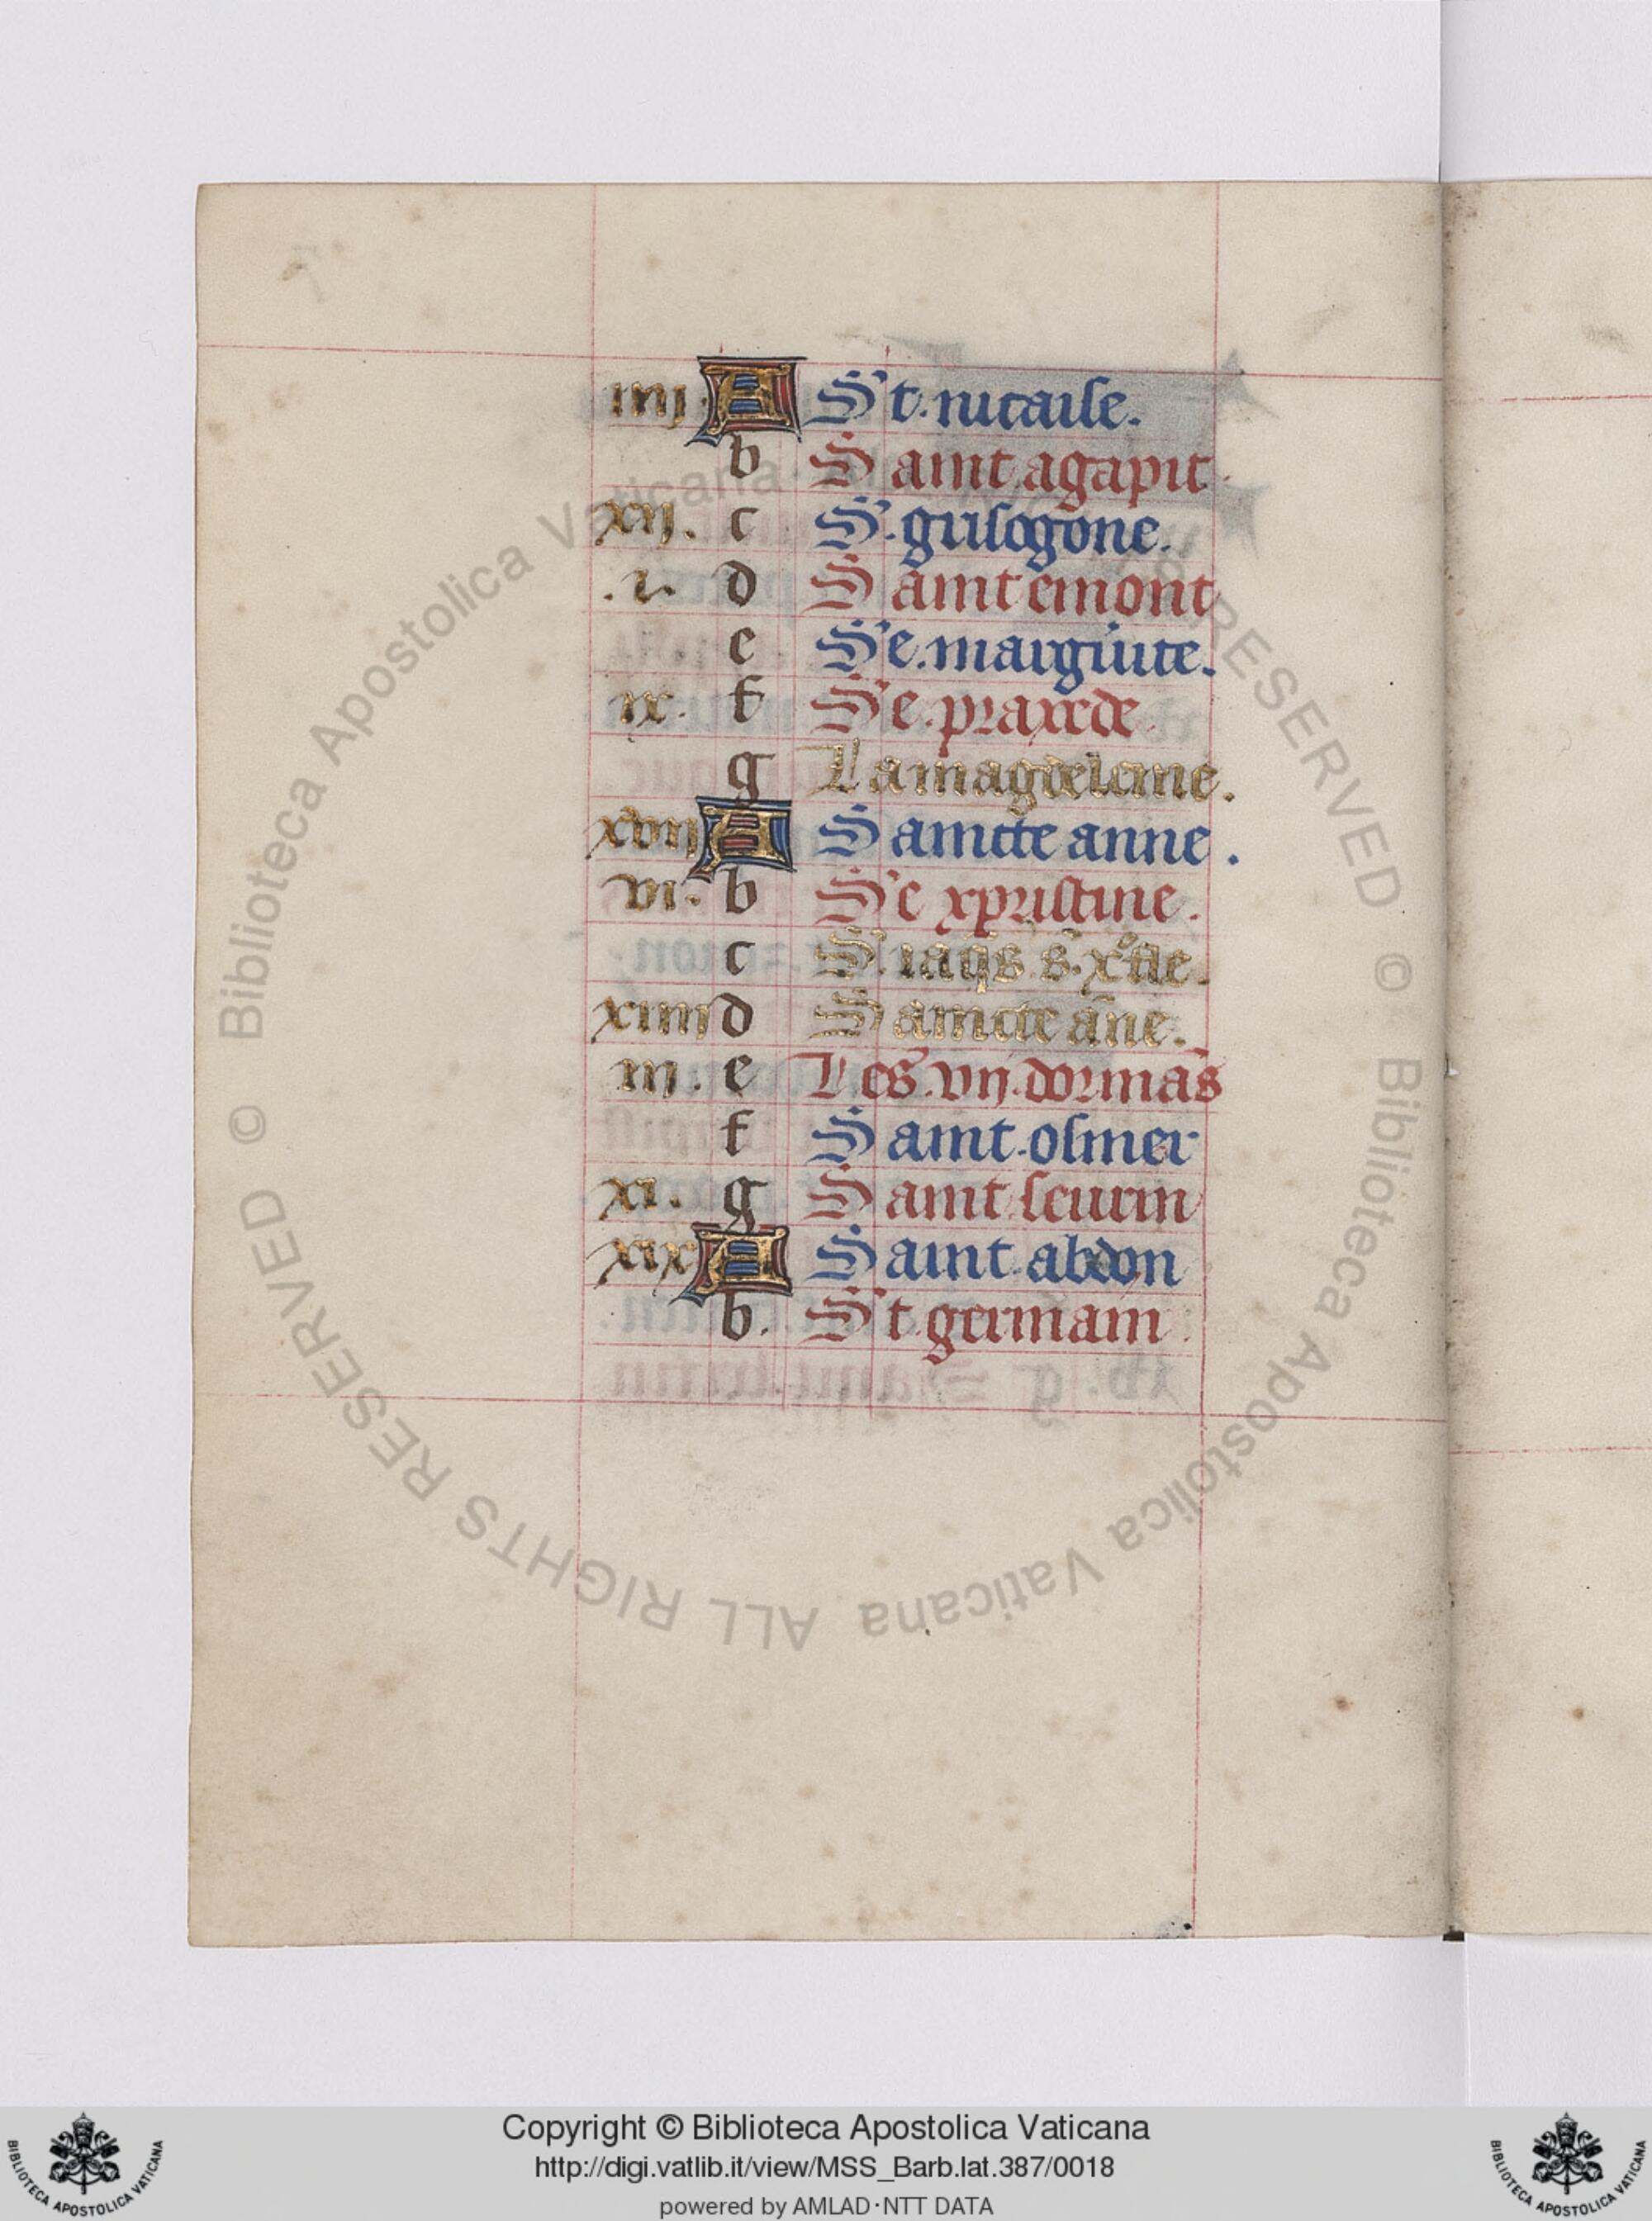 iiij. A St. nicaise.
b Saint agapit.
xij. c S'. grisogone.
.i. d Saint emont
e S'e. marg'uite.
ix. f S'e. praxede
g La magdeleine.
xvij A Saincte anne.
vi. b S'e xpristine.
c S'. iaq̄s s. x'fle.
xiiij d Saincte āne.
iij. e Les. vij. dormās
f Saint. osmer
xi. g Saint seurin
xix A Saint abdon
b. S't germain
© Biblioteca Apostolica Vaticana ALL RIGHTS RESERVED © Biblioteca Apostolica Vaticana ALL RIGHTS RESERVED
Copyright © Biblioteca Apostolica Vaticana
http://digi.vatlib.it/view/MSS_Barb.lat.387/0018
powered by AMLAD·NTT DATA
BIBLIOTECA APOSTOLICA VATICANA
BIBLIOTECA APOSTOLICA VATICANA